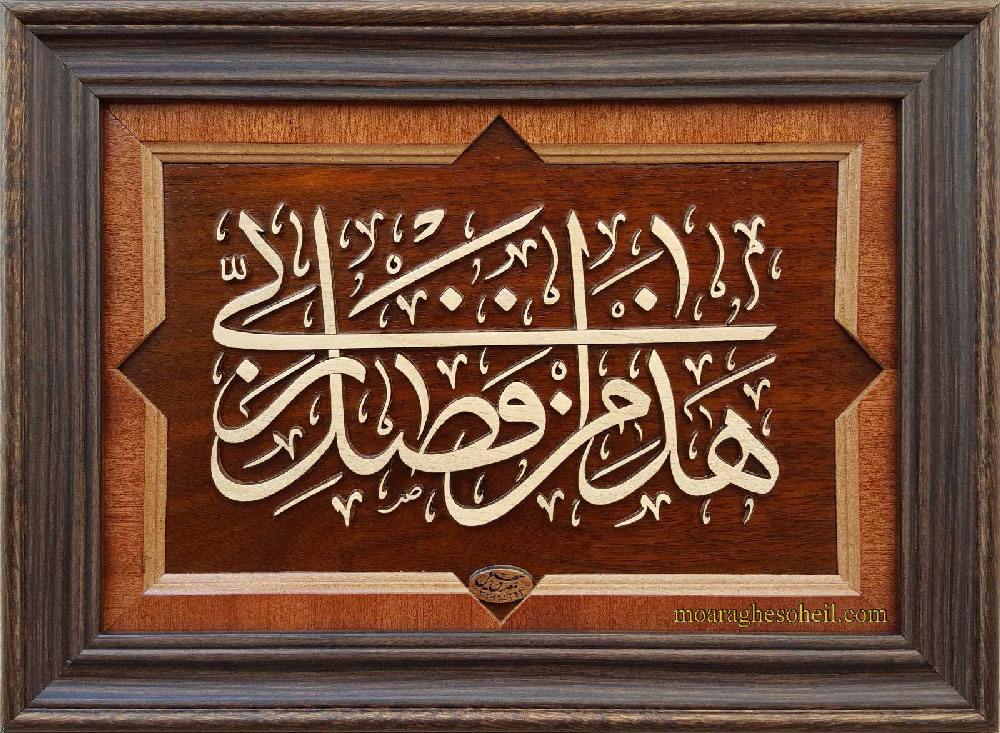 هذا من فضل ربی
moaraghesoheil.com